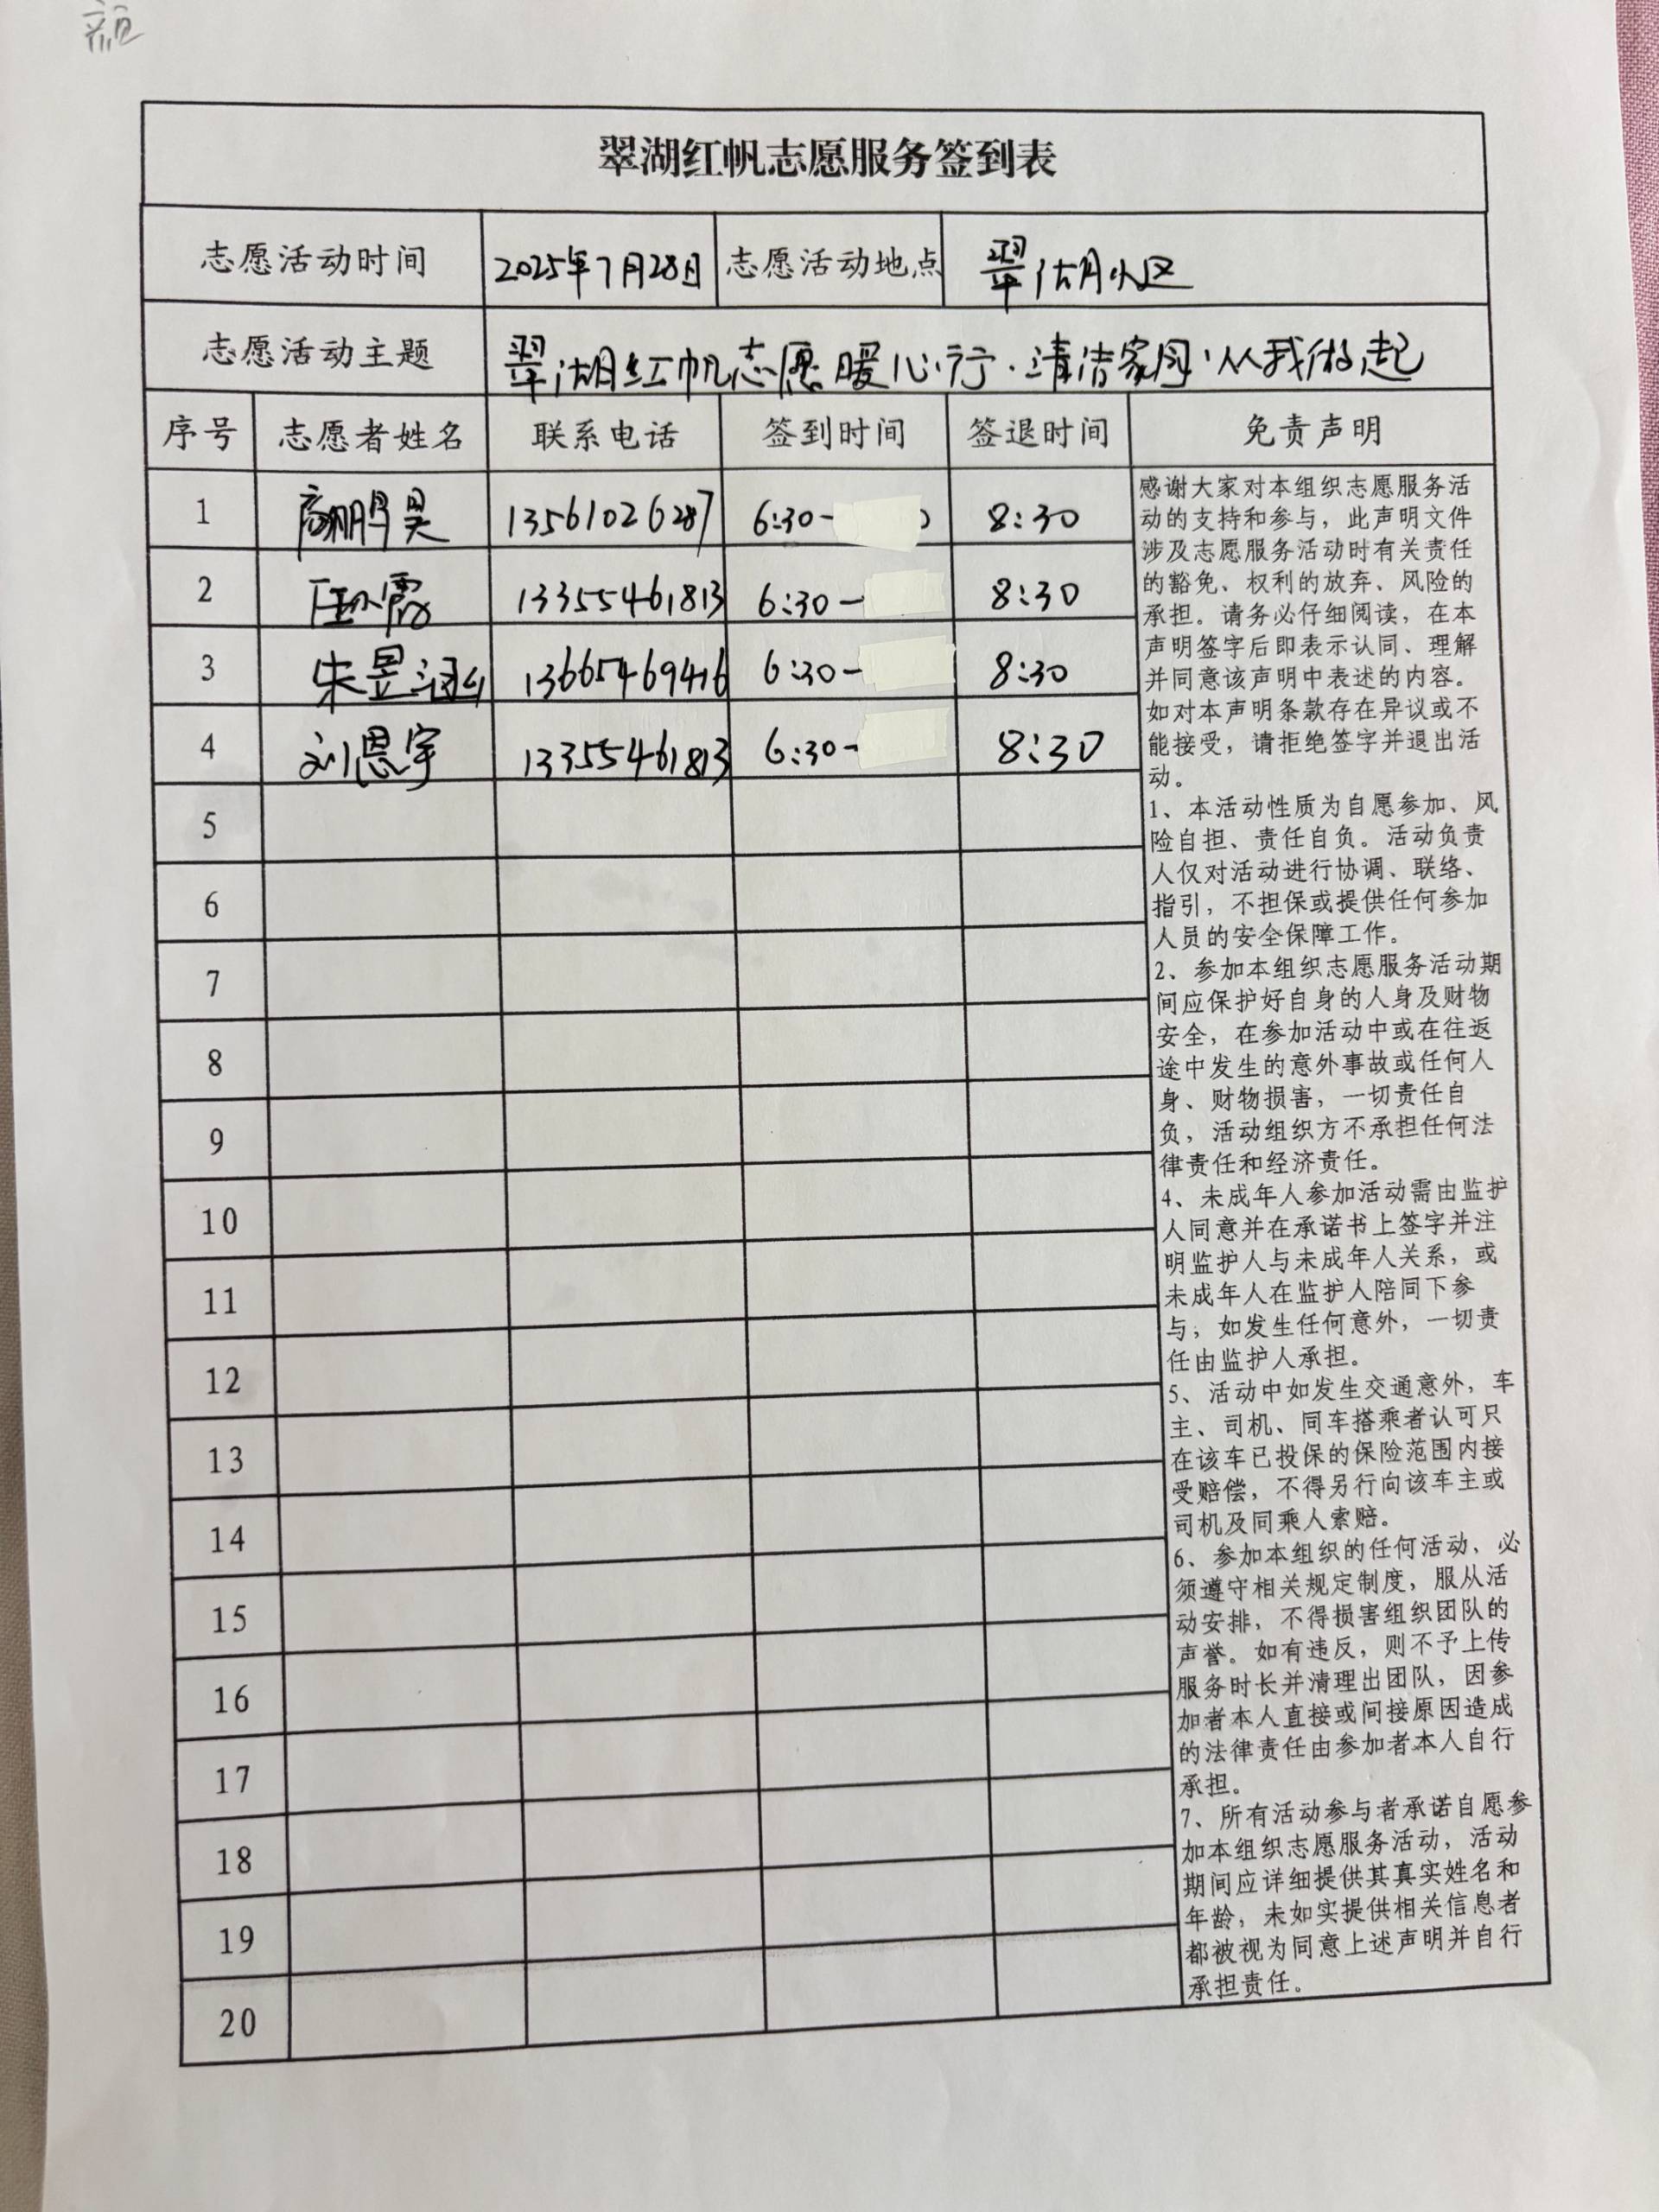 翠湖红帆志愿服务签到表
志愿活动时间 2025年7月28日 志愿活动地点 翠湖小区
志愿活动主题 翠湖红帆志愿暖心行·清洁家园·从我做起
序号 志愿者姓名 联系电话 签到时间 签退时间 免责声明
1 高鹏昊 13561026287 6:30- 8:30
2 任小霞 13355461813 6:30- 8:30
3 朱昱 13665469416 6:30- 8:30
4 刘恩宇 13355461813 6:30- 8:30
5
6
7
8
9
10
11
12
13
14
15
16
17
18
19
20
感谢大家对本组织志愿服务活
动的支持和参与，此声明文件
涉及志愿服务活动时有关责任
的豁免、权利的放弃、风险的
承担。请务必仔细阅读，在本
声明签字后即表示认同、理解
并同意该声明中表述的内容。
如对本声明条款存在异议或不
能接受，请拒绝签字并退出活
动。
1、本活动性质为自愿参加、风
险自担、责任自负。活动负责
人仅对活动进行协调、联络、
指引，不担保或提供任何参加
人员的安全保障工作。
2、参加本组织志愿服务活动期
间应保护好自身的人身及财物
安全，在参加活动中或在往返
途中发生的意外事故或任何人
身、财物损害，一切责任自
负，活动组织方不承担任何法
律责任和经济责任。
4、未成年人参加活动需由监护
人同意并在承诺书上签字并注
明监护人与未成年人关系，或
未成年人在监护人陪同下参
与；如发生任何意外，一切责
任由监护人承担。
5、活动中如发生交通意外，车
主、司机、同车搭乘者认可只
在该车已投保的保险范围内接
受赔偿，不得另行向该车主或
司机及同乘人索赔。
6、参加本组织的任何活动，必
须遵守相关规定制度，服从活
动安排，不得损害组织团队的
声誉。如有违反，则不予上传
服务时长并清理出团队，因参
加者本人直接或间接原因造成
的法律责任由参加者本人自行
承担。
7、所有活动参与者承诺自愿参
加本组织志愿服务活动，活动
期间应详细提供其真实姓名和
年龄，未如实提供相关信息者
都被视为同意上述声明并自行
承担责任。